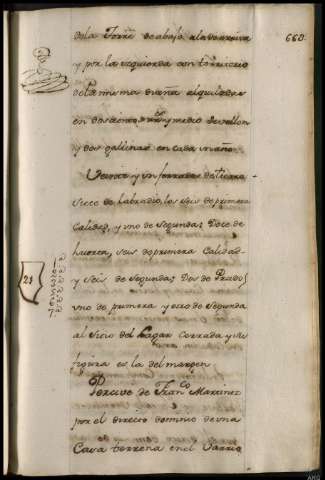 de la Torre de abajo, a la de arriva
y por la izquierda con territorio
de la misma
en doscientos y medio de vellon
y dos gallinas en cada un año
Veinte y un ferrados de tierra
Siete de labradio, los seis de primera
Calidad, y uno de segunda; Doce de
huerta, seis de primera Calidad
y seis de segunda; Dos de Prado;
uno de primera y otro de segunda
al Sitio del Lugar Cerrada y su
figura es la del margen
Percive de Franco. Martinez
por el directo dominio de una
Casa terrena en el Varrio
660.
21